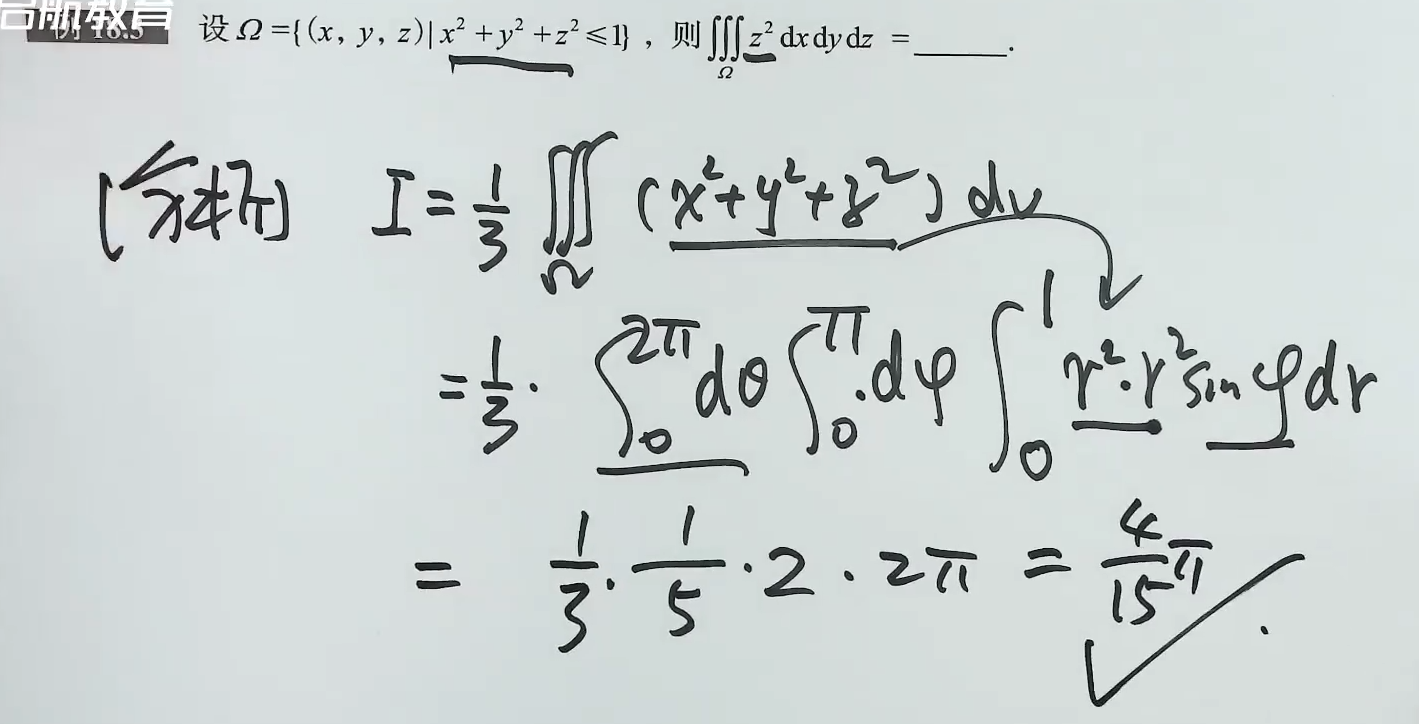 启航教育
例 16.5 设 Ω ={(x, y, z)|x²+y²+z²≤1}，则∭_Ω z² dxdydz =______.
[分析] I = 1/3 ∭_Ω (x²+y²+z²) dv
= 1/3 · ∫_0^{2π} dθ ∫_0^π dφ ∫_0^1 r²·r² sin φ dr
= 1/3 · 1/5 · 2 · 2π = 4/15 π